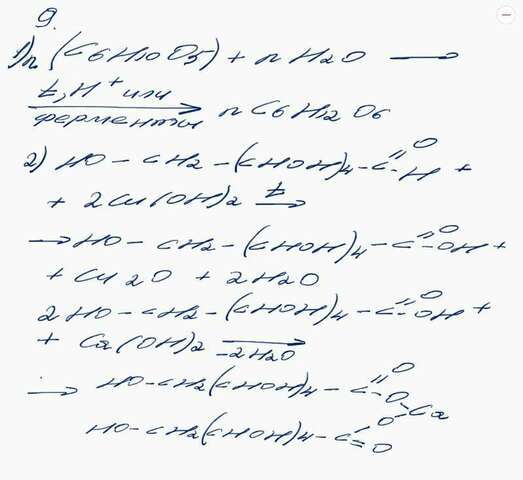 9.
1) n (C6H10O5) + n H2O ⟶
t, H⁺ или
ферменты n C6H12O6
2) HO – CH2 – (CHOH)4 – C =O – H +
+ 2Cu(OH)2 t⟶
⟶ HO – CH2 – (CHOH)4 – C =O – OH +
+ Cu2O + 2H2O
2 HO – CH2 – (CHOH)4 – C =O – OH +
+ Ca(OH)2 ⟶ –2H2O
⟶ HO–CH2(CHOH)4 – C =O – O – Ca
HO–CH2(CHOH)4 – C – O = O